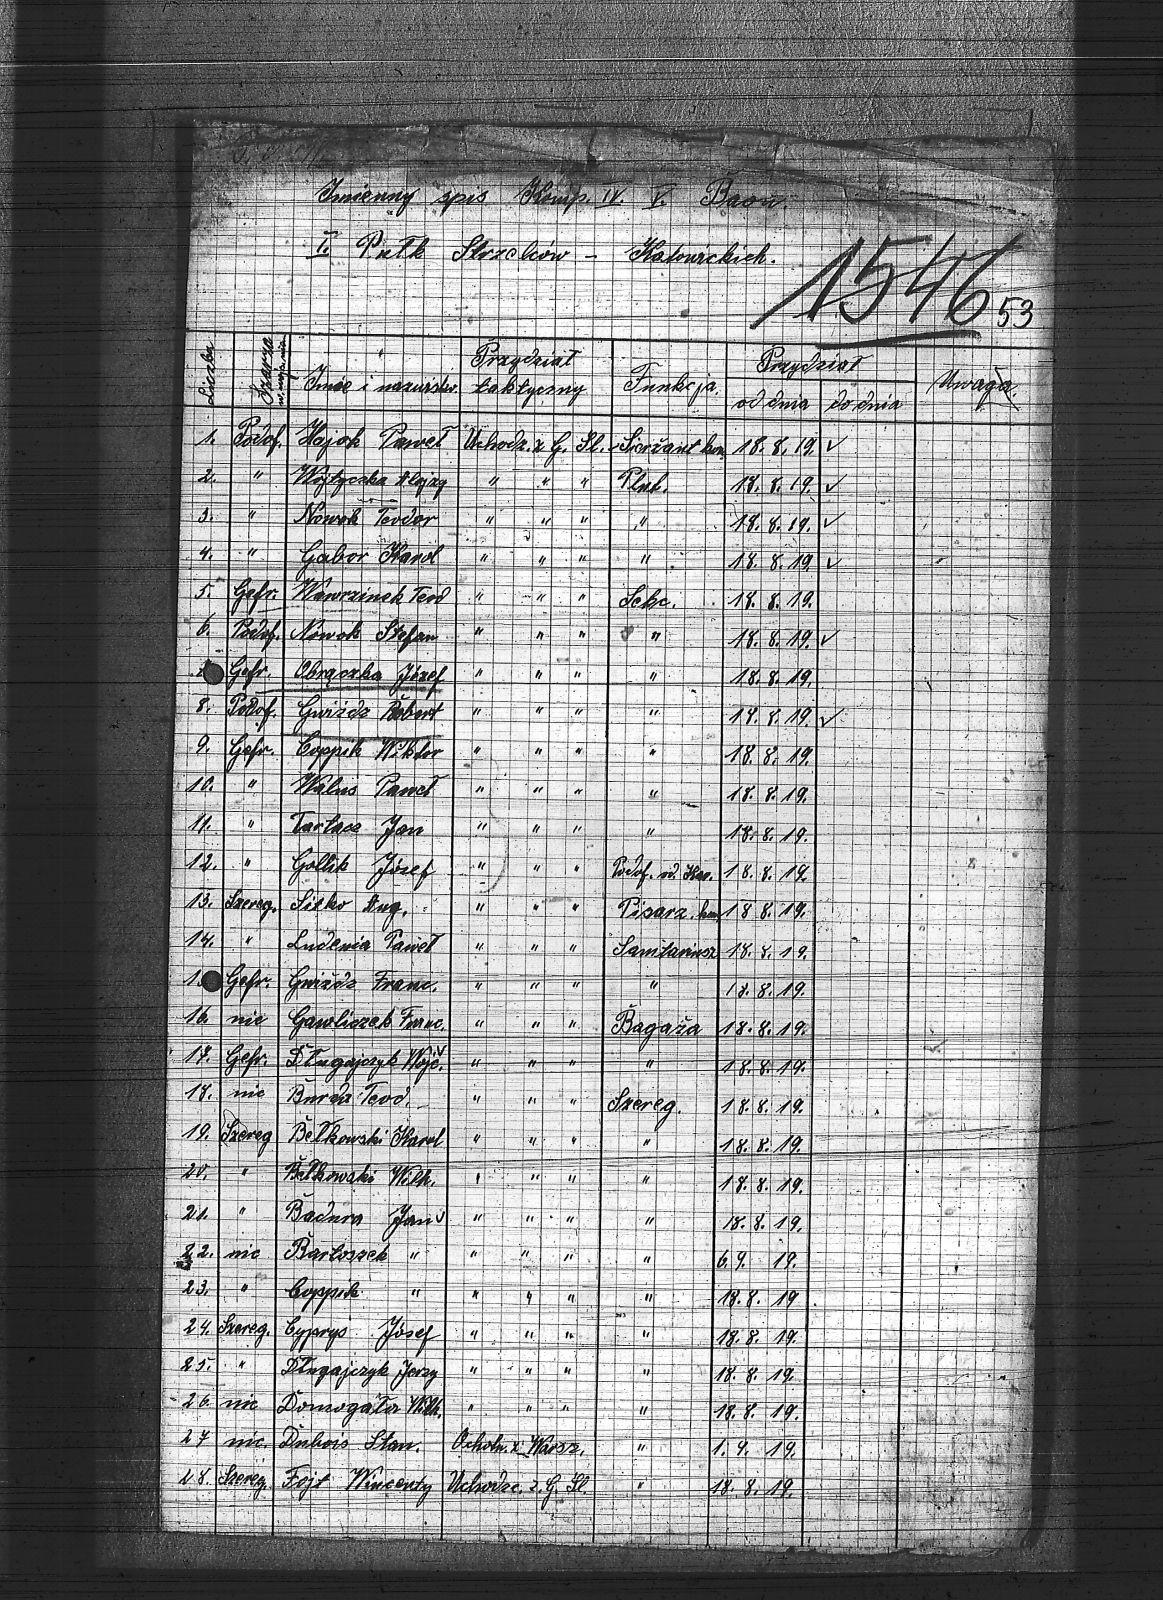 Imienny spis Komp. IV. V. Baon.
I. Pułk Strzelców - Katowickich.
1546 53
Liczba Szarża Imie i nazwisko. Przydział taktyczny Funkcja. Przydział od dnia do dnia Uwaga.
1. Podof. Hajok Paweł Uchodz. z G. Śl. Sierżant kom. 18. 8. 19. ✓
2. " Wojtyczka Alojzy " " " Plut. 18. 8. 19. ✓
3. " Nowok Teodor " " " " 18. 8. 19. ✓
4. " Gabor Karol " " " " 18. 8. 19. ✓
5. Gefr. Wawrzinek Teod " " " Sekc. 18. 8. 19.
6. Podof. Nowok Stefan " " " " 18. 8. 19. ✓
Gefr. Obrączka Józef " " " " 18. 8. 19.
8. Podof. Gwiżdż Robert " " " " 18. 8. 19. ✓
9. Gefr. Coppik Wiktor " " " " 18. 8. 19.
10. " Walus Paweł " " " " 18. 8. 19.
11. " Tarlacz Jan " " " " 18. 8. 19.
12. " Gollik Józef " " " Podof. 18. 8. 19.
13. Szereg. Sitko Aug. " " " Pisarz kom 18 8. 19.
14. " Ludenia Paweł " " " Sanitariusz 18. 8. 19.
1 Gefr. Gwiżdż Franc. " " " " 18. 8. 19.
16. nic Gawliczek Franc. " " " Bagaża 18. 8. 19.
17. Gefr. Długajczyk Wojc. " " " " 18. 8. 19.
18. nic Burda Teod. " " " Szereg. 18. 8. 19.
19. Szereg Bełkowski Karol " " " " 18. 8. 19.
20. " Bełkowski Wilh. " " " " 18. 8. 19.
21. " Badura Jan " " " " 18. 8. 19.
22. nic Bartoszek " " " " " 6. 9. 19.
23. " Coppik " " " " " 18. 8. 19
24. Szereg. Cyprys Józef " " " " 18. 8. 19.
25. " Długajczyk Jerzy " " " " 18. 8. 19.
26. nic Domogała Wilh. " " " " 18. 8. 19.
27 nic. Dubois Stan. Ochotn. z Warsz. " 1. 9. 19.
28. Szereg. Fojt Wincenty Uchodzc. z G. Śl. " 18. 8. 19.